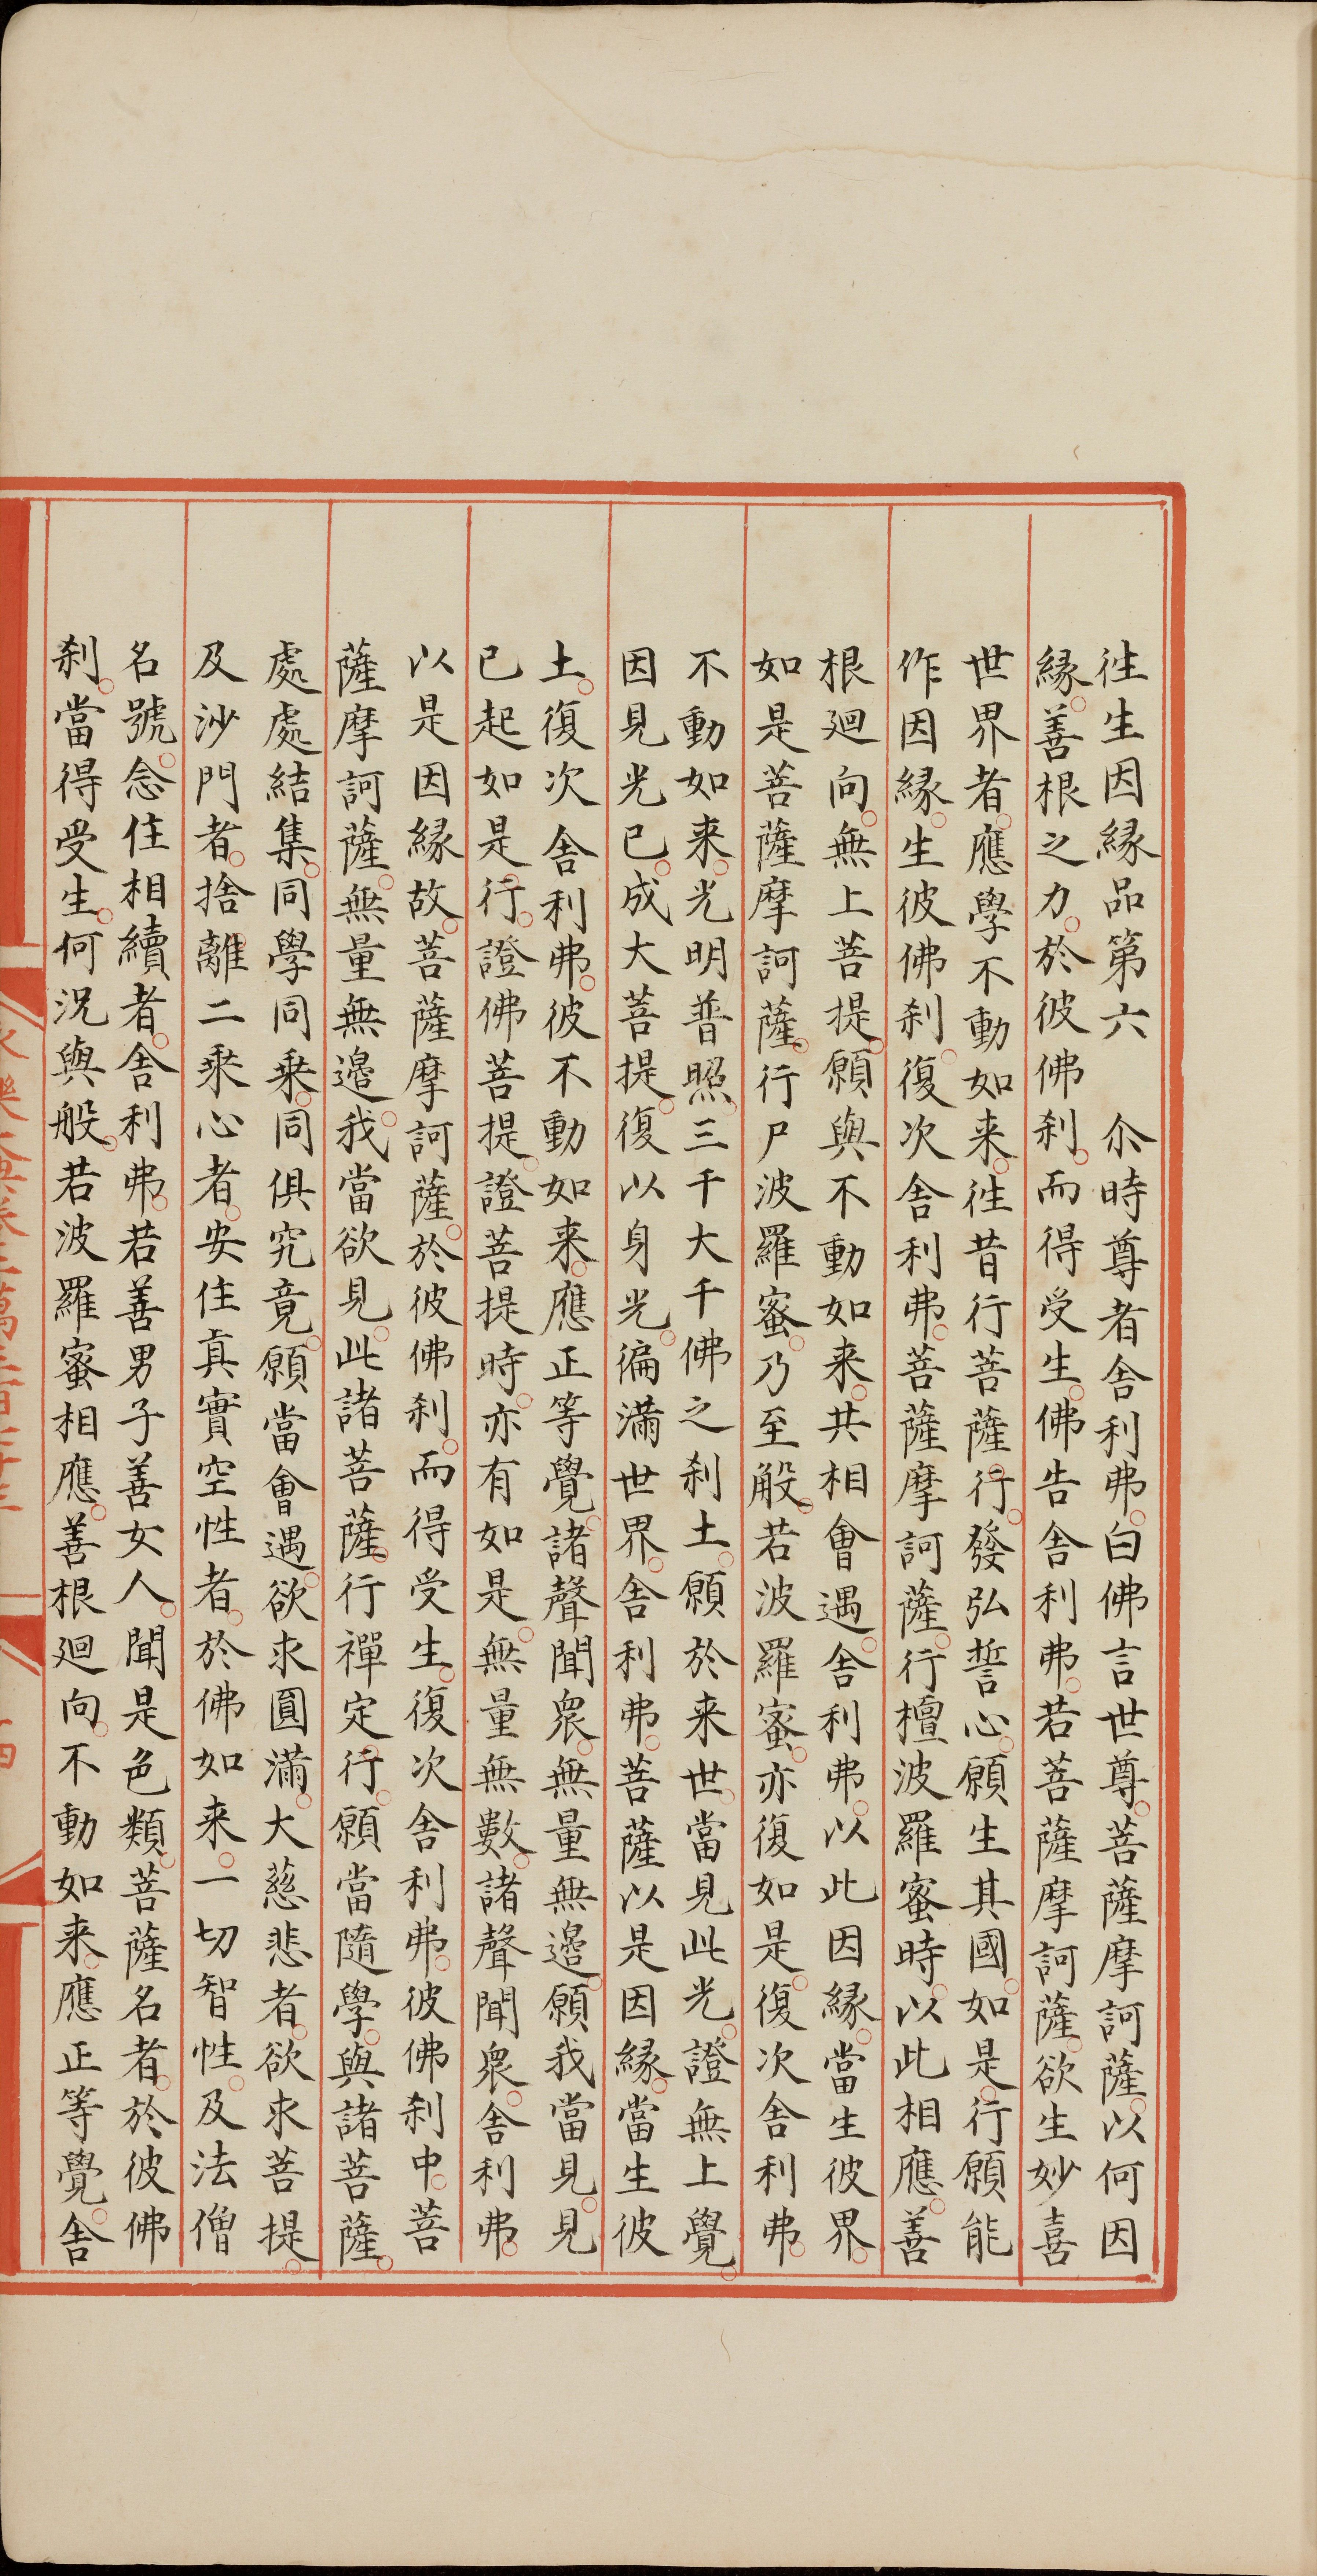 徃生因縁品第六　尒時尊者舎利弗。白佛言世尊。菩薩摩訶薩。以何因
縁。善根之力。於彼佛刹。而得受生。佛告舎利弗。若菩薩摩訶薩。欲生妙喜
世界者。應學不動如来。徃昔行菩薩行。發弘誓心。願生其國。如是行願能
作因縁。生彼佛刹。復次舎利弗。菩薩摩訶薩。行檀波羅蜜時。以此相應。善
根廻向。無上菩提。願與不動如来。共相會遇。舎利弗。以此因縁。當生彼界。
如是菩薩摩訶薩。行尸波羅蜜。乃至般。若波羅蜜。亦復如是。復次舎利弗。
不動如来。光明普照。三千大千佛之刹土。願於来世。當見此光。證無上覺。
因見光已。成大菩提。復以身光。徧滿世界。舎利弗。菩薩以是因縁。當生彼
土。復次舎利弗。彼不動如来。應正等覺。諸聲聞衆。無量無邉。願我當見。見
已起如是行。證佛菩提。證菩提時。亦有如是。無量無數。諸聲聞衆。舎利弗。
以是因縁故。菩薩摩訶薩。於彼佛刹。而得受生。復次舎利弗。彼佛刹中。菩
薩摩訶薩。無量無邉。我當欲見。此諸菩薩。行禪定行。願當隨學。與諸菩薩。
處處結集。同學同乘。同俱究竟。願當會遇。欲求圓滿。大慈悲者。欲求菩提。
及沙門者。捨離二乘心者。安住真實空性者。於佛如来。一切智性。及法僧
名號。念住相續者。舎利弗。若善男子善女人。聞是色類。菩薩名者。於彼佛
刹。當得受生。何況與般。若波羅蜜相應。善根廻向。不動如来。應正等覺。舎